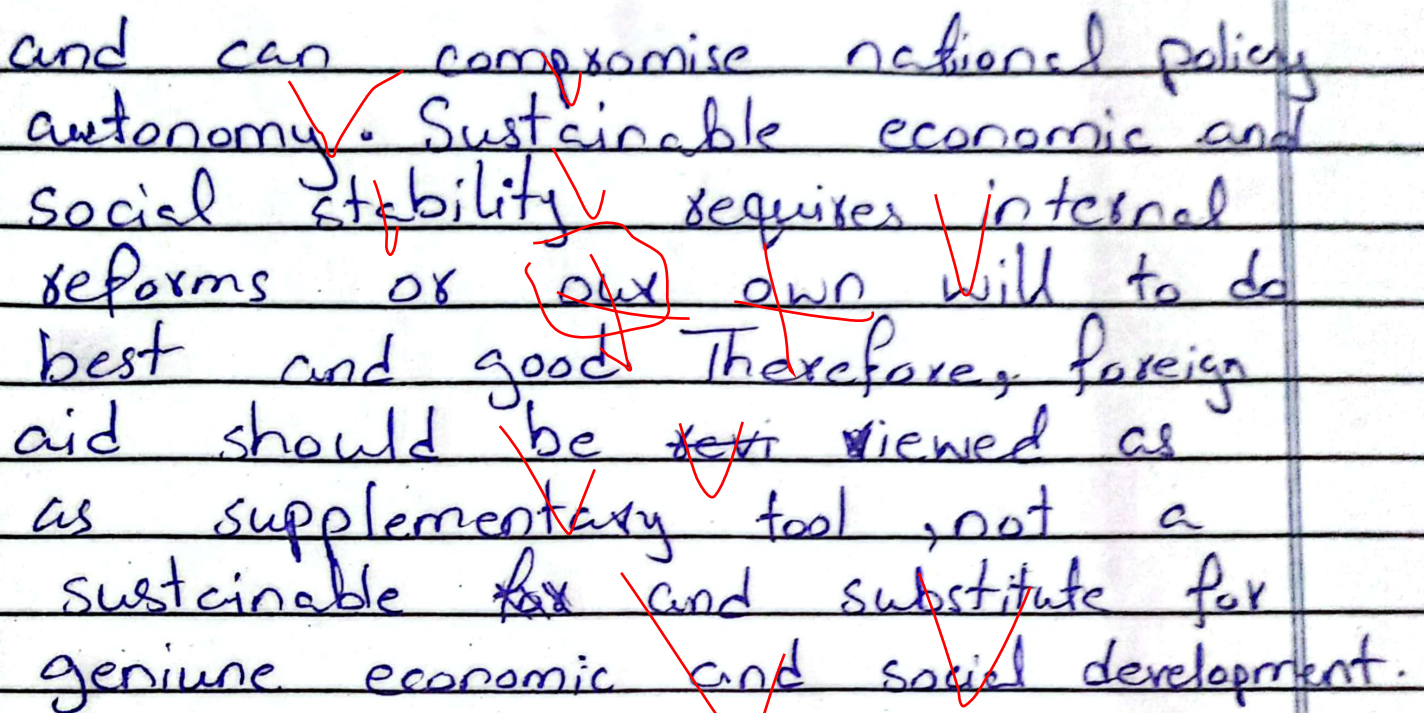 and can compromise national policy
autonomy. Sustainable economic and
social stability requires internal
reforms or our own will to do
best and good Therefore, foreign
aid should be revi viewed as
as supplementary tool , not a
sustainable for and substitute for
geniune economic and social development.